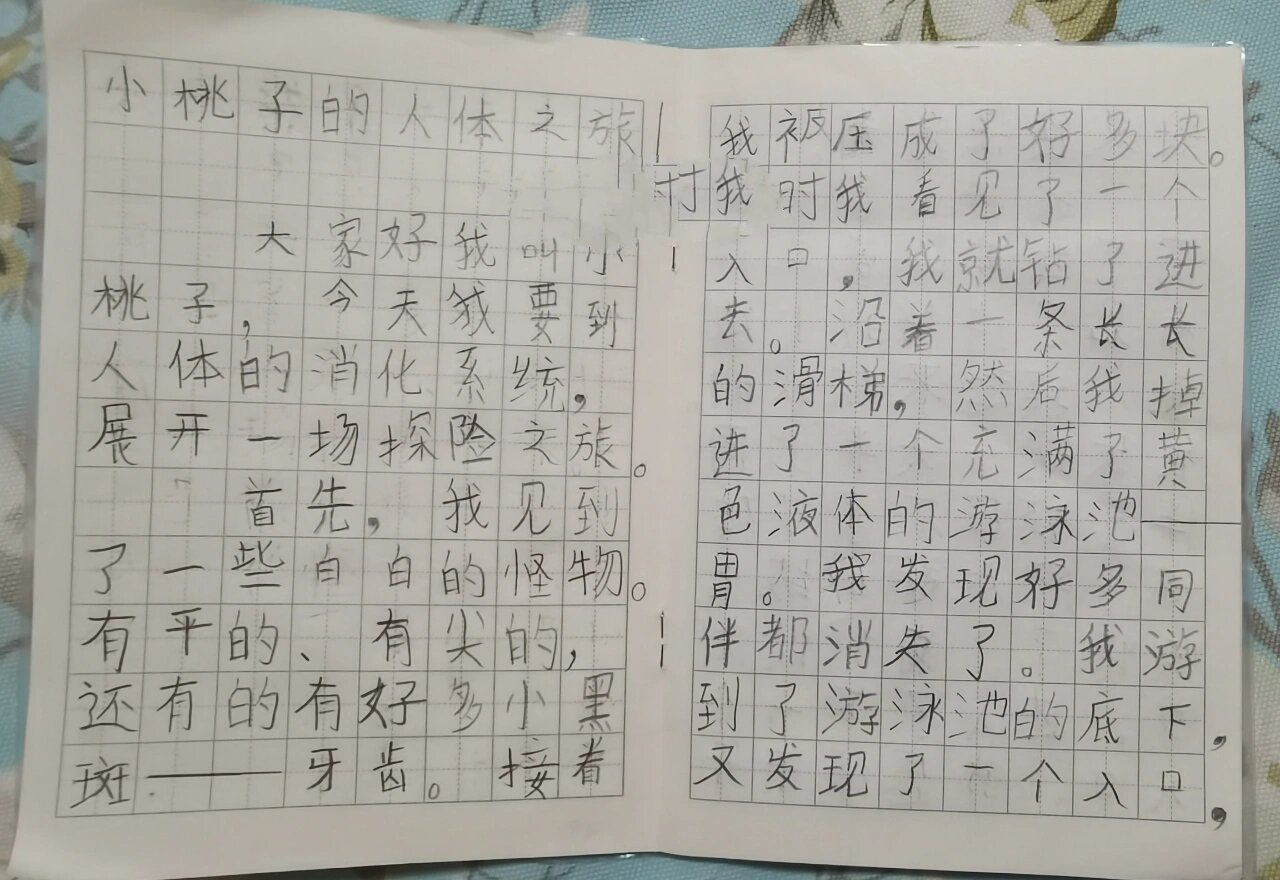 小桃子的人体之旅
大家好我叫小
桃子，今天我要到
人体的消化系统，
展开一场探险之旅。
首先，我见到
了一些白白的怪物。
有平的、有尖的，
还有的有好多小黑
斑——牙齿。接着
我被压成了好多块。
我时我看见了一个
入口，我就钻了进
去。沿着一条长长
的滑梯，然后我掉
进了一个充满了黄
色液体的游泳池——
胃。我发现好多同
伴都消失了。我游
到了游泳池的底下，
又发现了一个入口，